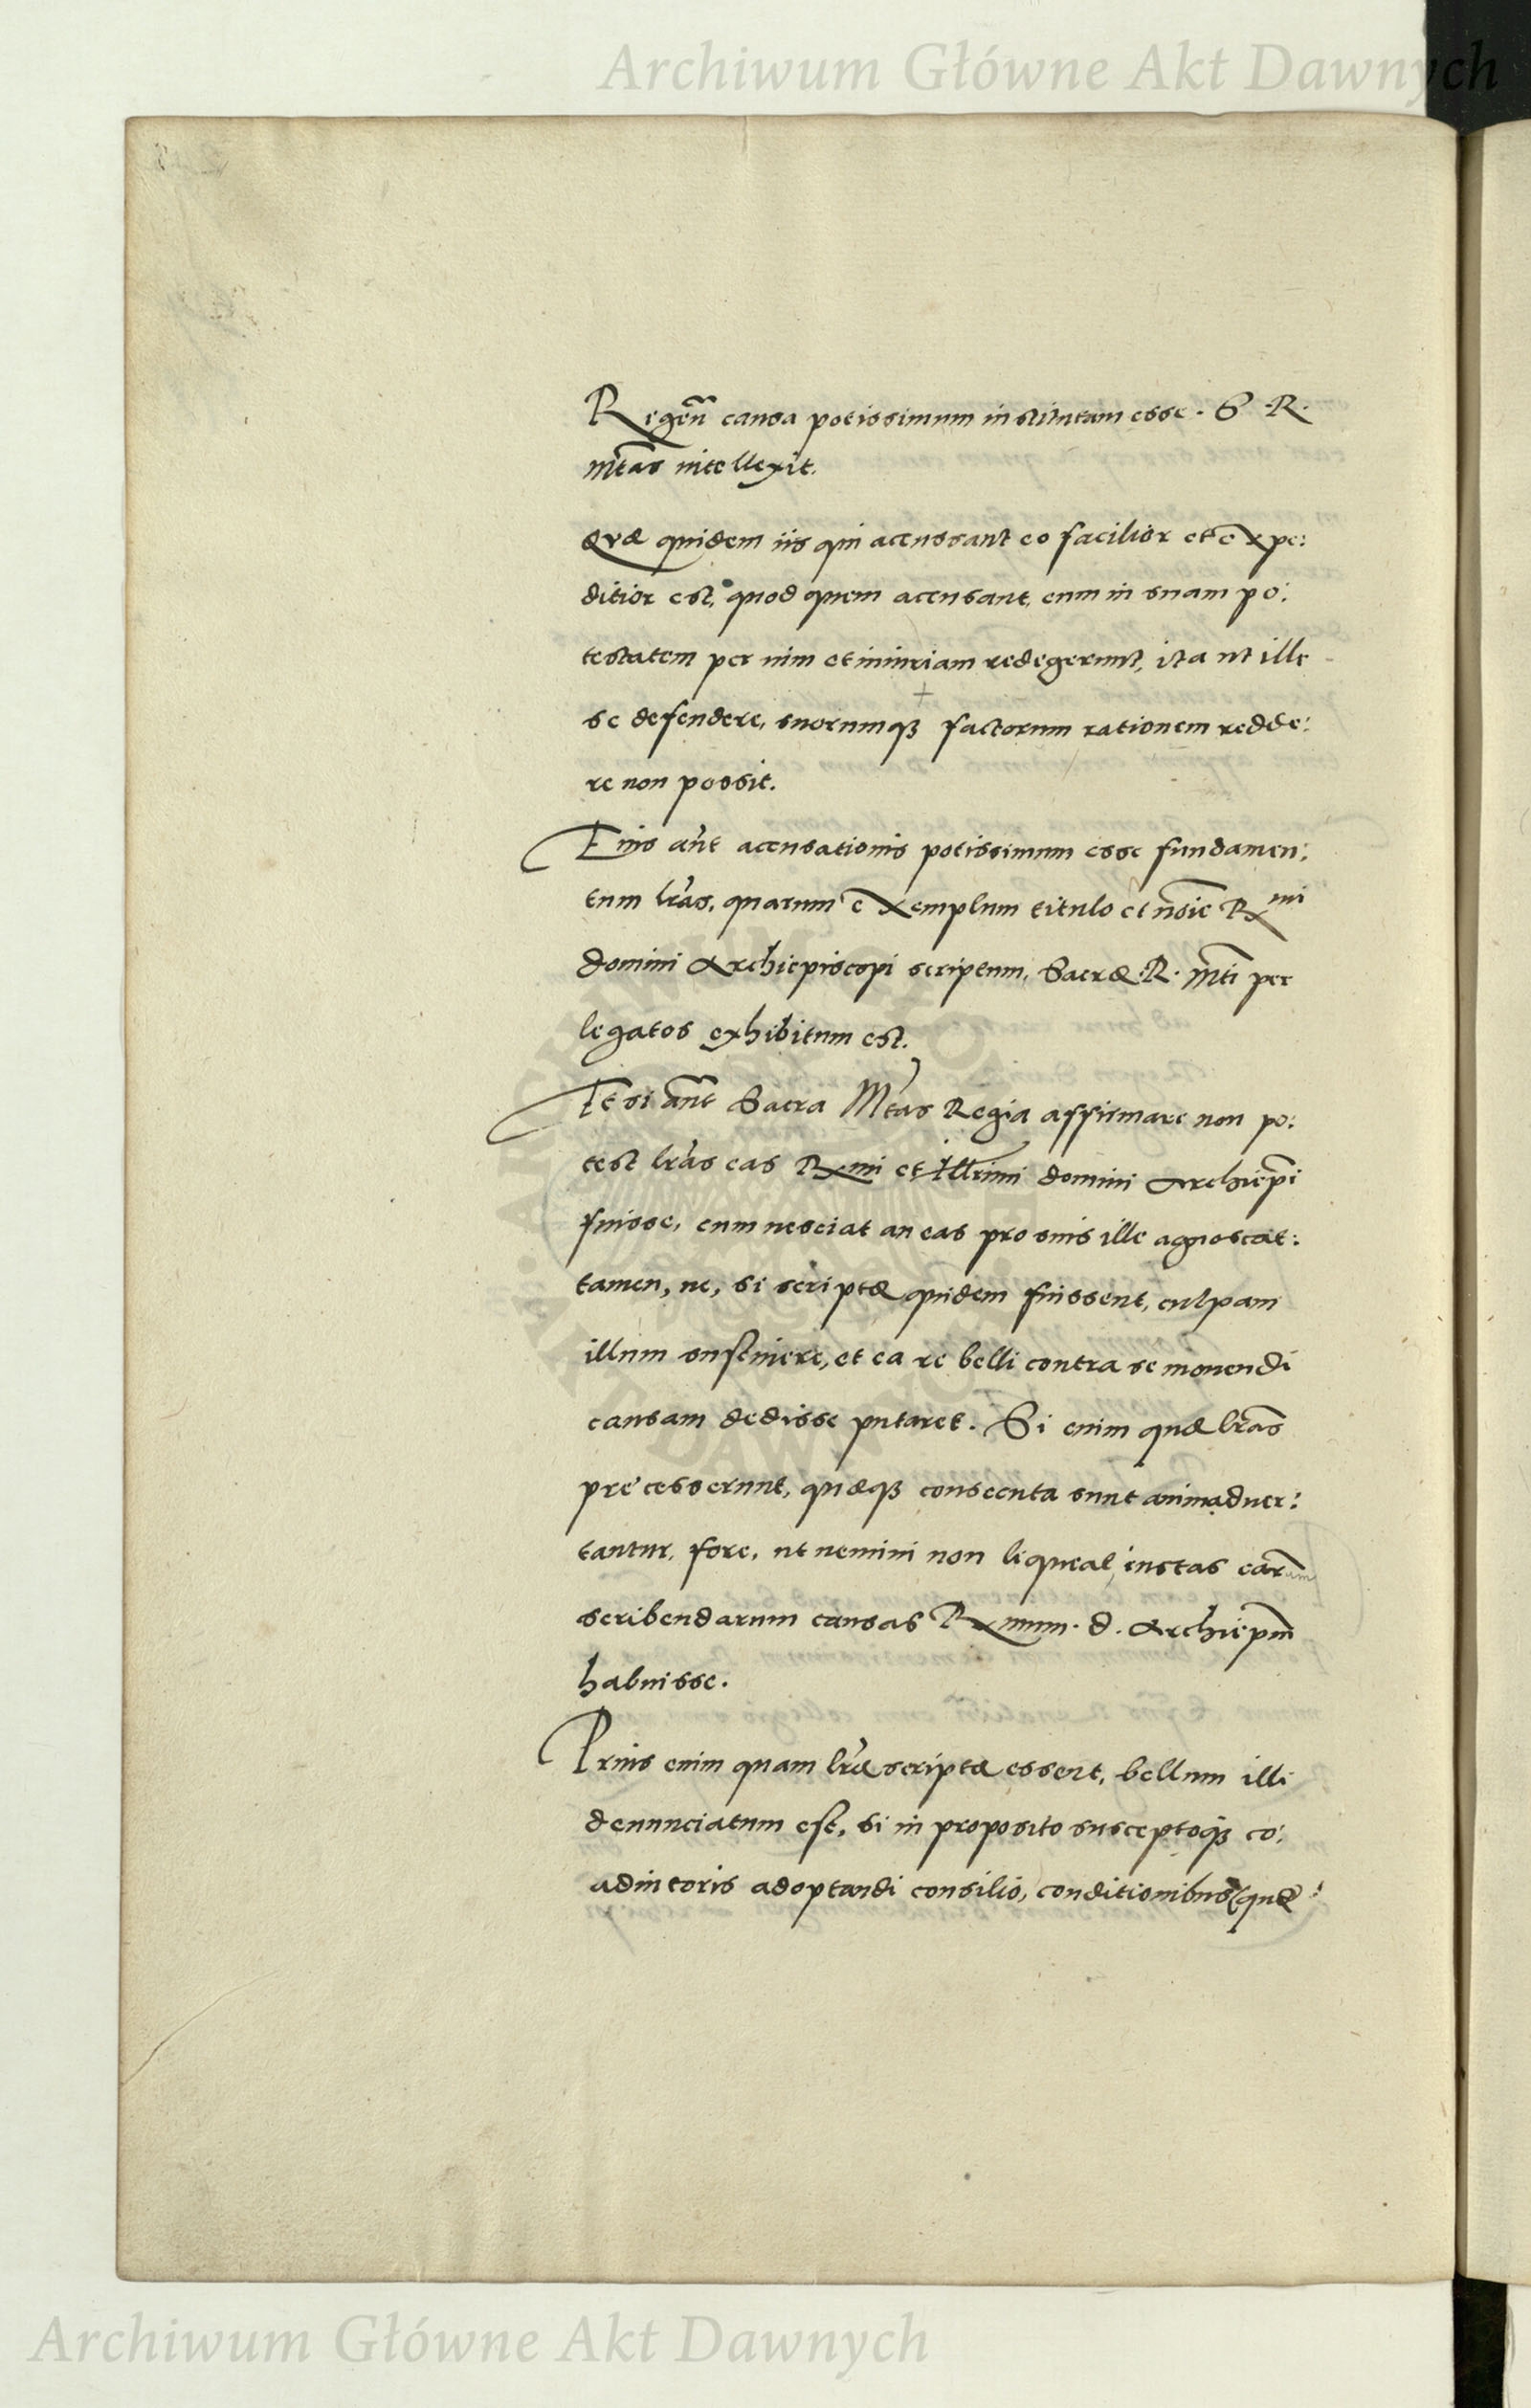 Archiwum Główne Akt Dawnych
Regẽn causa potissimum institutam esse. S. R.
Mtãs intellexit.
Quæ quidem iis qui accussant eo facilior et expe:
ditior est, quod quem accusant, eum in suam po:
testatem per uim et iniuriam redegerunt, ita ut ille
se defendere, suorumqȝ factorum rationem redde:
re non possit.
Eius aũt accusationis potissimum esse fundamen:
tum lrãs, quarum exemplum titulo et nõie Rmi
domini Archiepiscopi scriptum, Sacræ R. Mti per
legatos exhibitum est.
Etsi aũt Sacra Mtas Regia affirmare non po:
test lrãs eas Rmi et Illrimi domini Archiepĩ
fuisse, cum nesciat an eas pro suis ille agnoscat:
tamen, ne, si scriptæ quidem fuissent, culpam
illum sustinere, et ea re belli contra se mouendi
causam dedisse putaret. Si enim quæ lrãs
precesserunt, quæqȝ consecuta sunt animaduer:
tantur, fore, ut nemini non liqueat, iustas earum
scribendarum causas Rmum. d. Archiepm̃
habuisse.
Prius enim quam lræ scriptæ essent, bellum illi
denunciatum est, si in proposito susceptoqȝ co:
adiutoris adoptandi consilio, conditionibus (quæ
ARCHIWUM GŁÓWNE AKT DAWNYCH
Archiwum Główne Akt Dawnych